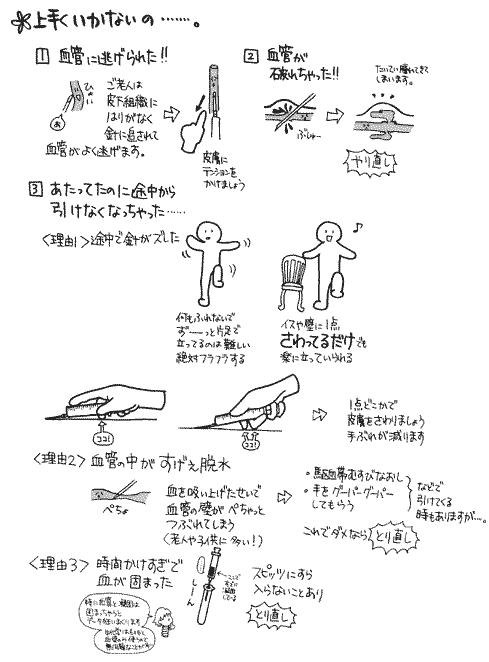 上手くいかないの……。
1 血管に逃げられた!!
ひょい
あ
ご老人は
皮下組織に
はりがなく
針に追されて
血管がよく逃げます。
皮膚に
テンションを
かけましょう
2 血管が
破れちゃった!!
ぶしゅー
たいてい腫れてきて
しまいます。
やり直し
3 あたってたのに途中から
引けなくなっちゃった……
〈理由1〉途中で針がズレた
何もふれないで
ずーっと片足で
立ってるのは難しい
絶対フラフラする
イスや壁に1点
さわってるだけでも
楽に立っていられる
ココ!
ココ!
1点どこかで
皮膚をさわりましょう
手ぶれが減ります
〈理由2〉血管の中がすげぇ脱水
ぺちょ
血を吸い上げたせいで
血管の壁がぺちゃっと
つぶれてしまう
(老人や子供に多い!)
・駆血帯むすびなおし
・手をグーパーグーパー
してもらう
などで
引けてくる
時もありますが…。
これでダメなら
とり直し
〈理由3〉時間かけすぎで
血が固まった
しーん
スピッツにすら
入らないことあり
とり直し